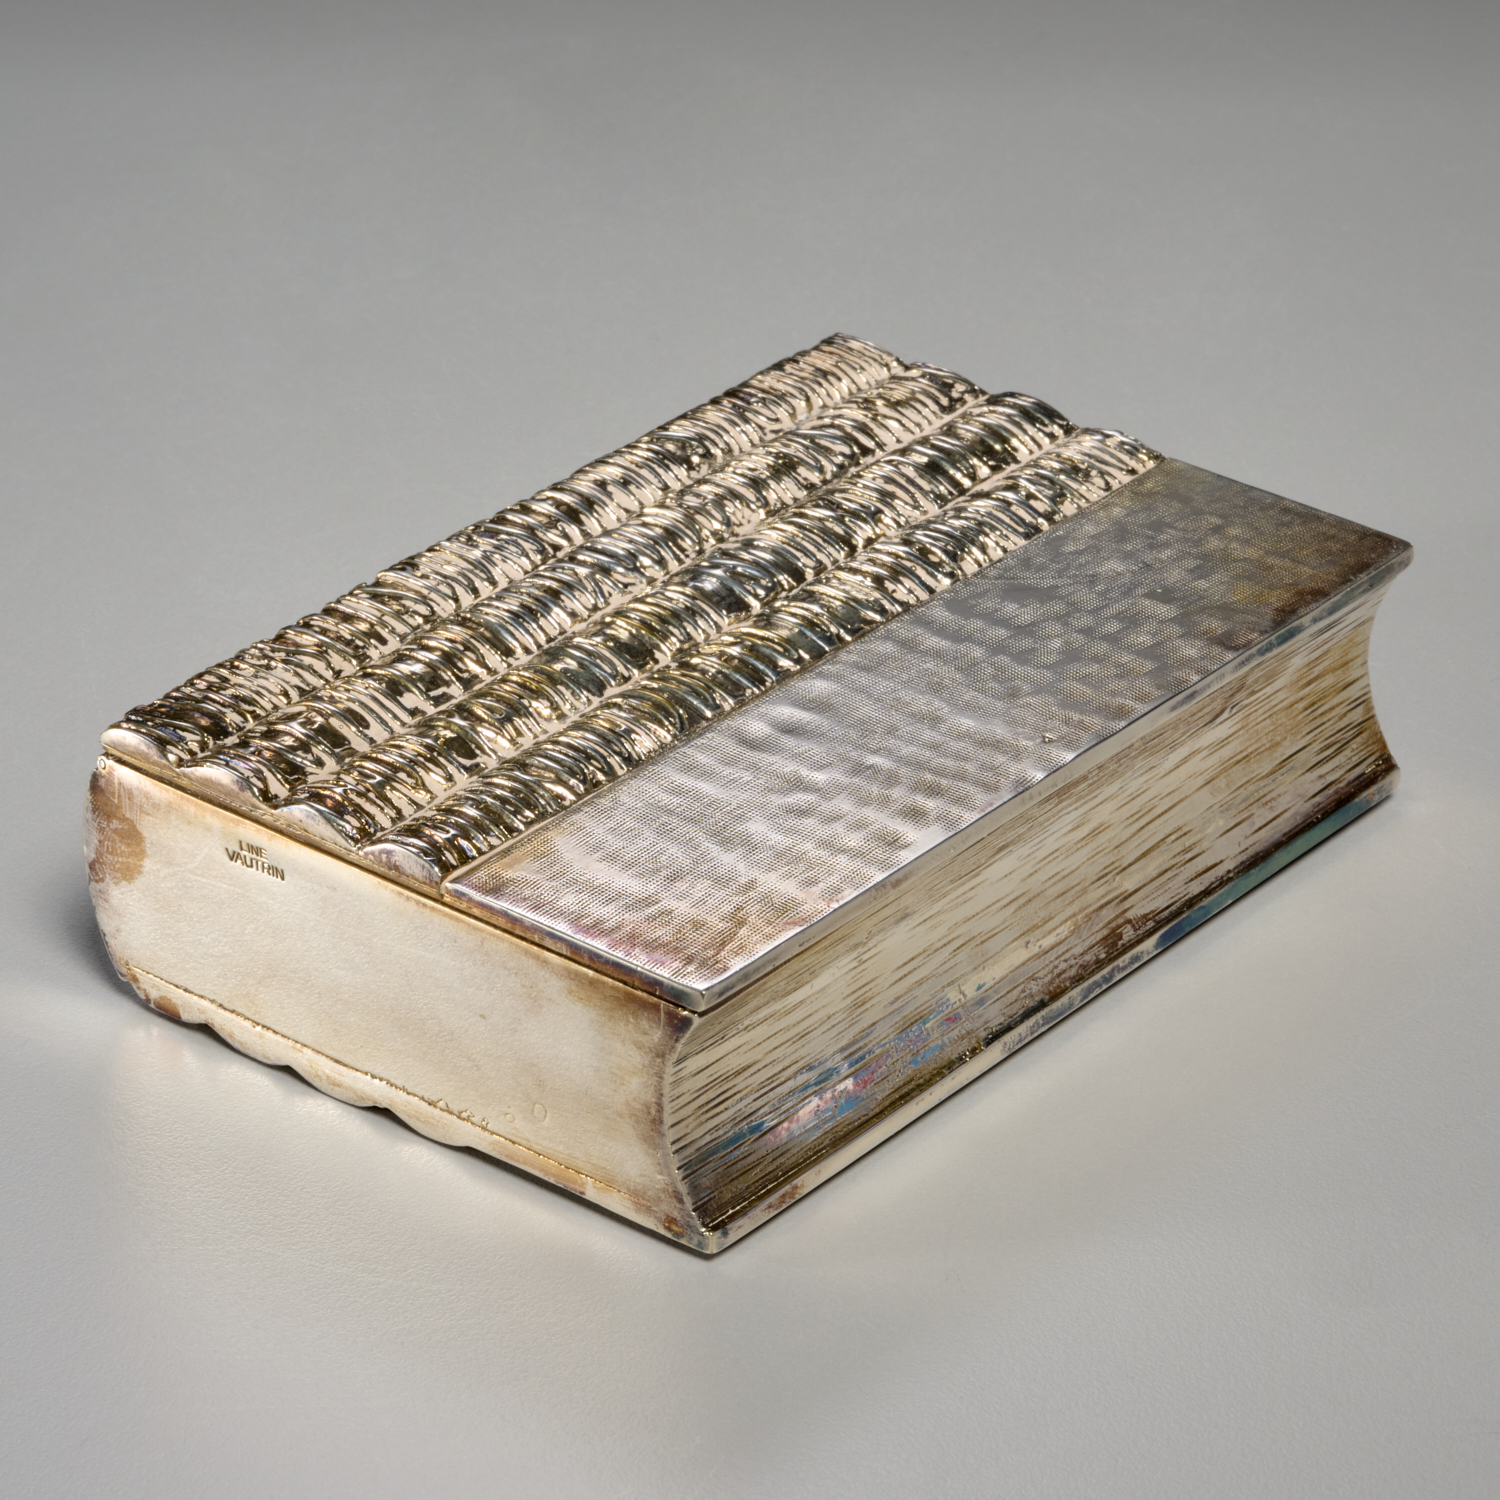 LINE
VAUTRIN